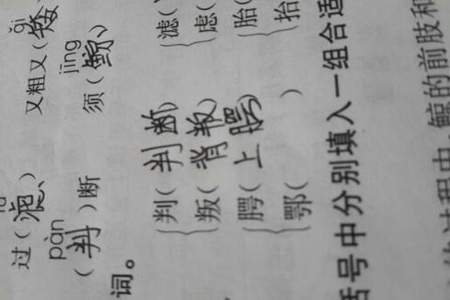 ǎi
过(滤) 又粗又(矮
pàn jīng
(判)断 须(鲸)
词。
判(判断) 滤(
叛(背叛) 虑(
腭(上腭) 胎(
鄂( ) 抬(
号中分别填入一组合适
过程中,鲸的前肢和